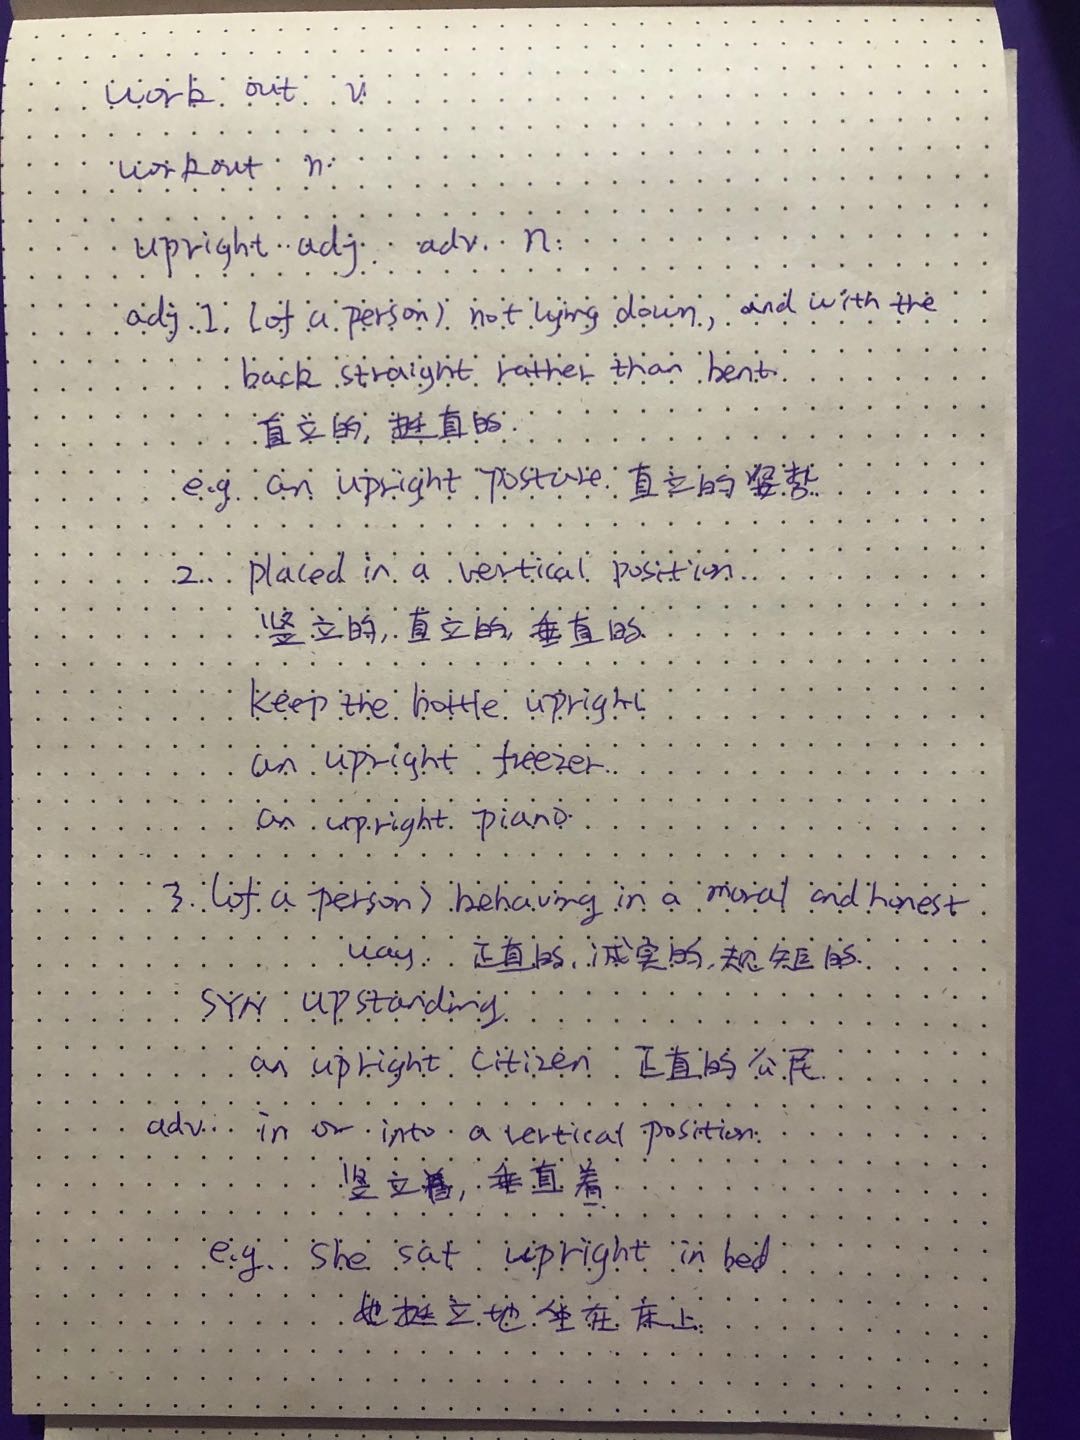 work out v
workout n.
upright adj. adv. n.
adj. 1. (of a person) not lying down, and with the
back straight rather than bent.
直立的, 挺直的.
e.g. an upright posture. 直立的姿势
2. placed in a vertical position.
竖立的, 直立的, 垂直的.
keep the bottle upright
an upright freezer.
an upright piano.
3. (of a person) behaving in a moral and honest
way. 正直的, 诚实的, 规矩的.
SYN upstanding
an upright citizen 正直的公民
adv. in or into a vertical position.
竖立着, 垂直着
e.g. She sat upright in bed
她挺立地坐在床上.